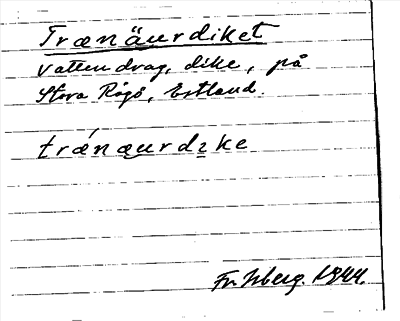 Trænäurdiket
vattendrag, dike, på
Stora Rågö, Estland.
trǽnæurdıke
1944.